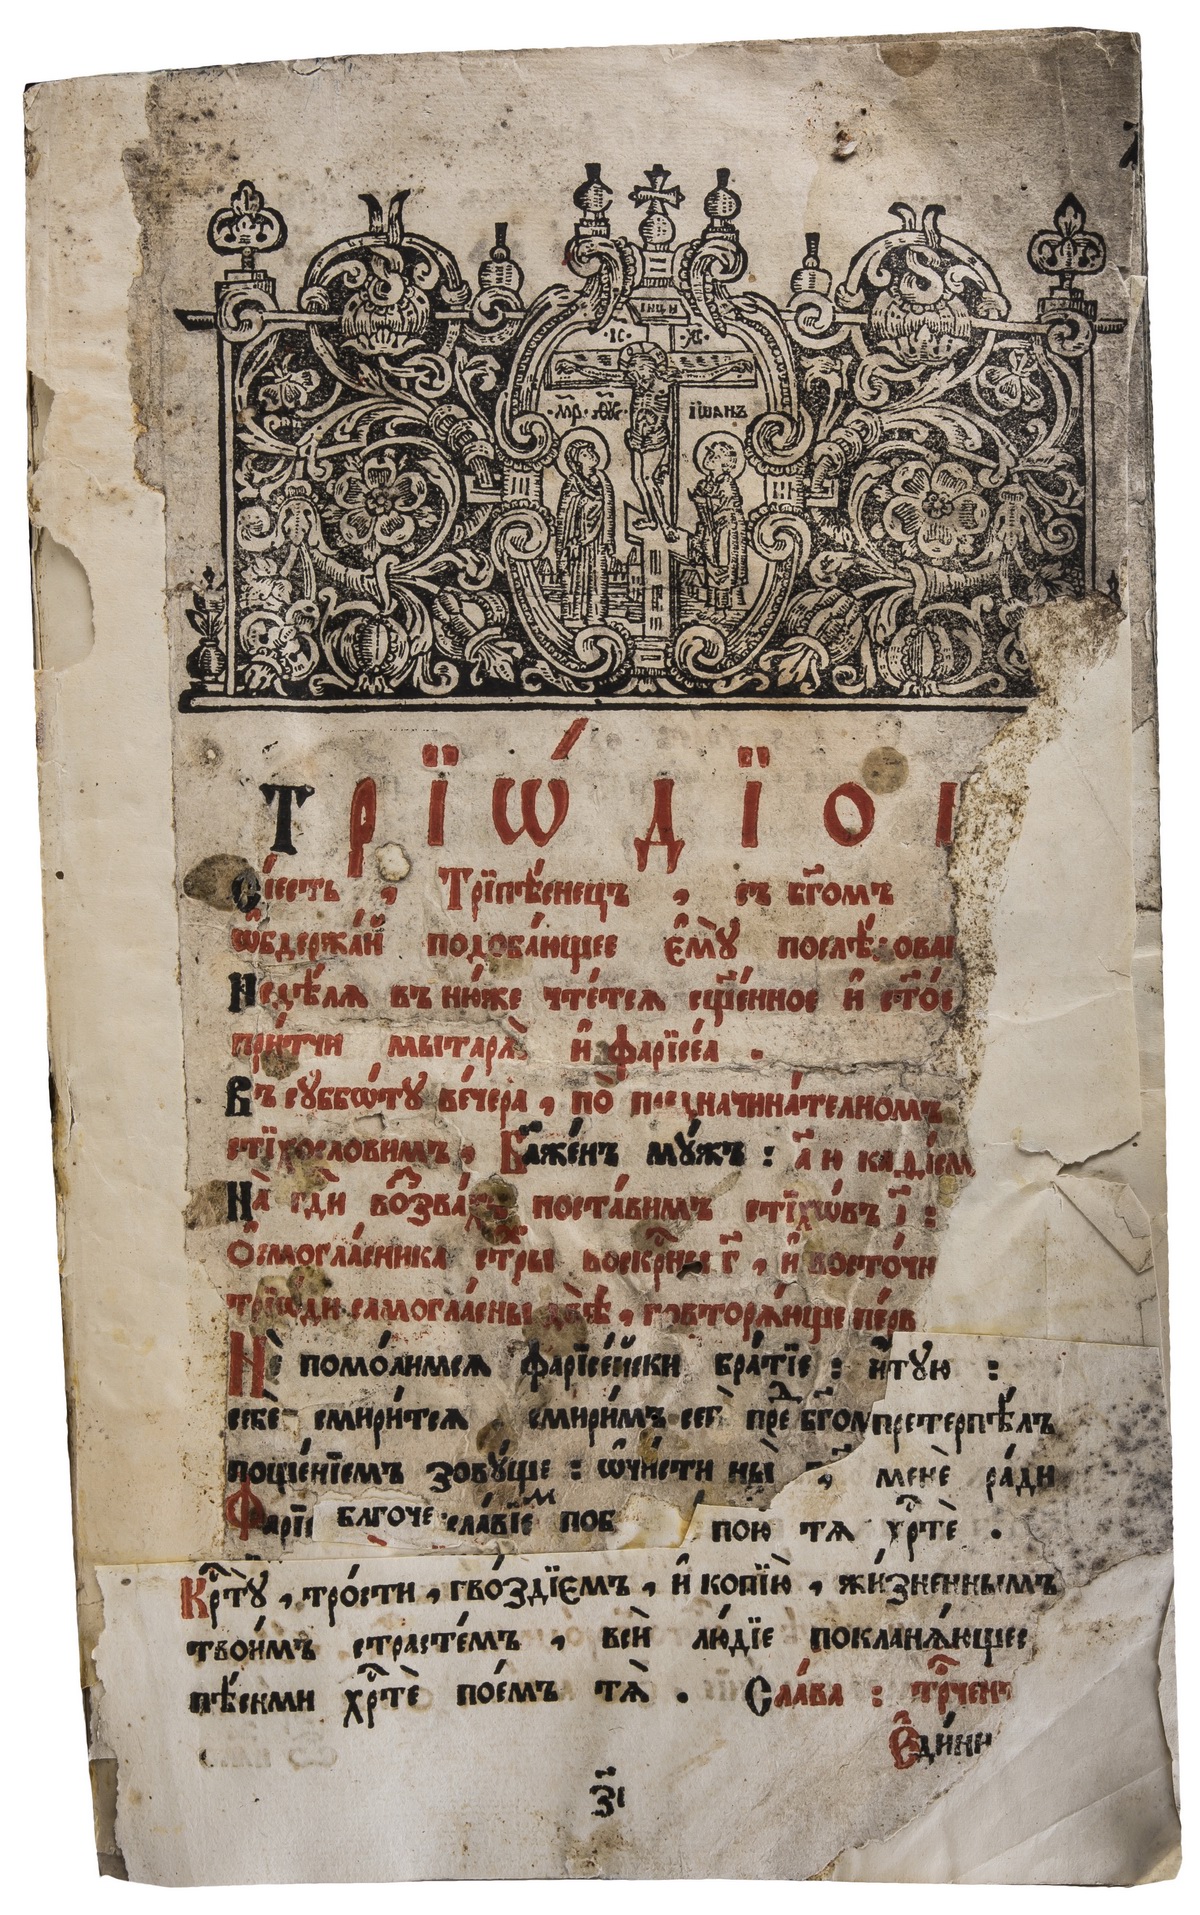 ІНЦИ
ІС ХС
МР ѲУ ІѠАНЪ
ТРЇѠ́ДЇО
Сіесть , Трїпѣ́снецъ , съ бг҃омъ
ѡ҆бдержа́й подоба́ющее є҆мꙋ̀
Недѣ́лѧ въ ню́же чте́тсѧ сщ҃е́нное и҆
при́тчи мытарѧ̀ и҆ фарїсе́а .
Въ сꙋббѡ́тꙋ ве́чера , по̀ предначина́телномъ
стїхословимъ , Бл҃же́нъ мꙋ́жъ : а҃ ю
На̀ гд҃и воззва́хъ поста́вимъ стїхѡ́въ і҃ :
Ѻ҆смогла́сника воскр҃ны г҃ , и҆ восто́чн
трїѡди самогла́сны двѣ̀ , повторѧ́юще пе́рв
Нѐ помо́лимсѧ фарїсе́йски бра́тїе : и҆тꙋю :
себѐ смири́тсѧ смири́мъ пред̾ бг҃ом претерпѣ́лъ
поще́нїемъ зовꙋ́ще : ѡ҆чи́сти ны́ менѐ ра́ди
Фарїс благоче славїем поб пою тѧ хр҃тѐ .
Кр҃тꙋ̀ , тро́сти , гво́здїемъ , и҆ копїю̀ , жи́зненнымъ
твои́мъ страсте́мъ , всѝ лю́дїе покланѧ́ющесѧ
пѣ́сньми хр҃тѐ пое́мъ тѧ̀ . Сла́ва : тр҃чен
Є҆ди́ни
з҃і